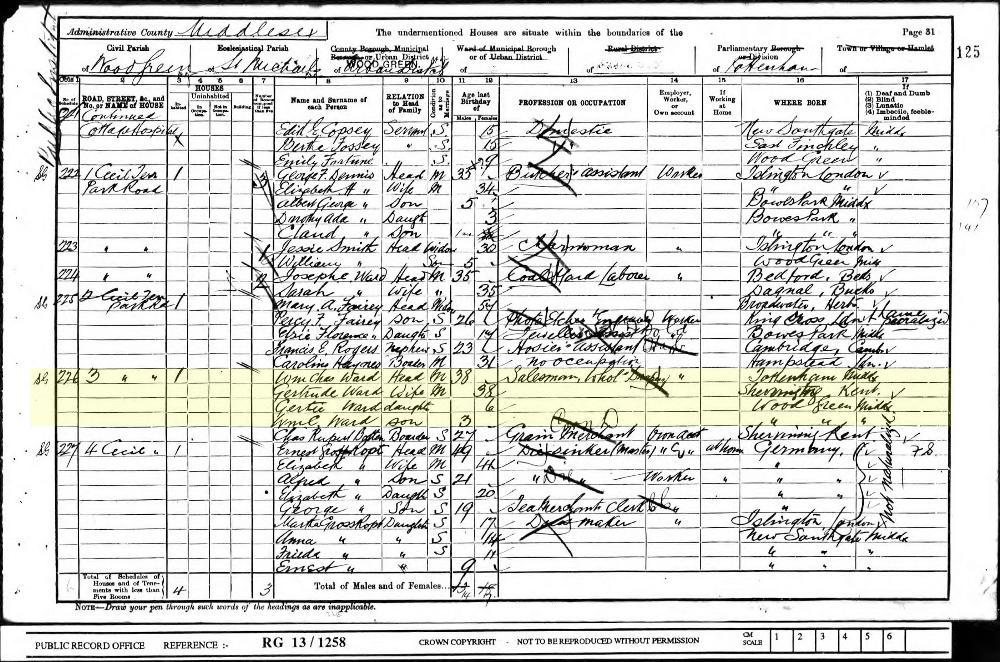 Administrative County Middlesex The undermentioned Houses are situate within the boundaries of the Page 31
125
Civil Parish Ecclesiastical Parish County Borough, Municipal Borough or Urban District Ward of Municipal Borough or of Urban District Rural District Parliamentary Borough or Division Town or Village or Hamlet
of Wood Green of St Michael of WOOD GREEN of of of Tottenham of
Cols. 1 2 3 4 5 6 7 8 9 10 11 12 13 14 15 16 17
No. of Schedule ROAD, STREET, &c., and No. or NAME of HOUSE HOUSES Inhabited Uninhabited In Occupation Not in Occupation Building Name and Surname of each Person RELATION to Head of Family Condition as to Marriage Age last Birthday of Males Females PROFESSION OR OCCUPATION Employer, Worker, or Own account If Working at Home WHERE BORN If
(1) Deaf and Dumb
(2) Blind
(3) Lunatic
(4) Imbecile, feeble-minded
221 Continued
Cottage Hospital Edith E Copsey Servant S 15 Domestic New Southgate Midds
Bertha Fossey " S 15 " East Finchley "
Emily Fortune S 29 Wood Green "
222 1 Cecil Ter 1 George F. Dennis Head M 35 Butcher's assistant Worker Islington London
Park Road Elizabeth H " Wife M 34 " "
Albert George " Son 5 Bowes Park Midds
Dorothy Ada " Daugh 3 Bowes Park "
Claud " Son " "
223 " " Jessie Smith Head Widow 30 Charwoman " Islington London
William " Son 5 Wood Green Midds
224 " " Joseph Ward Head M 35 Coal Yard Laborer " Bedford, Beds
Sarah " Wife " 35 Dagnal, Bucks
225 2 Cecil Ter 1 Mary A. Fairey Head Wid 57 Broadwater, Herts
Park Rd Percy F. Fairey Son S 26 Photo Etcher Engraver Worker Kings Cross Lon
Elsie Florence " Daught S 19 Bowes Park Midds
Francis E. Rogers Nephew S 23 Hosier's Assistant Cambridge, Camb
Caroline Haynes Boarder M 31 no occupation Hampstead Lon
226 3 " " 1 Wm Chas Ward Head M 38 Salesman, Whol Drapery " Tottenham Midds
Gertrude Ward Wife M 38 Kent
Gertie Ward daughter 6 Wood Green Midds
Wm C Ward son 3 " " "
Chas Rupert Boarder S 27 Grain Merchant Own acct Kent
227 4 Cecil " 1 Ernest Grosskopf Head M 49 Diesinker (Master) at home Germany 78
Elizabeth " Wife M 44 "
Alfred " Son S 21 Worker " "
Elizabeth " Daught S 20 "
George " Son S 19 Clerk "
Martha Grosskopf Daught S 17 maker " Islington London
Anna " " S 14 New Southgate Midds
Frieda " " S 11 " " "
Ernest " " 9 " " "
not naturalized
Total of Schedules of Houses and of Tenements with less than Five Rooms 4 3 Total of Males and Females...
NOTE—Draw your pen through such words of the headings as are inapplicable.
PUBLIC RECORD OFFICE REFERENCE :- RG 13/1258 CROWN COPYRIGHT - NOT TO BE REPRODUCED WITHOUT PERMISSION CM SCALE 1 2 3 4 5 6